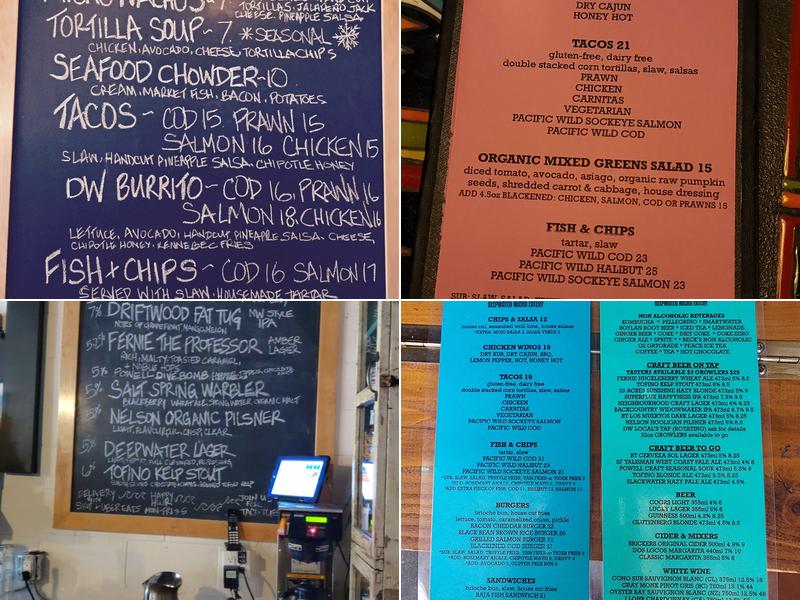 TORTILLAS, JALAPEÑO, JACK
CHEESE, PINEAPPLE SALSA
TORTILLA SOUP ~ 7. * SEASONAL
CHICKEN, AVOCADO, CHEESE, TORTILLA CHIPS
SEAFOOD CHOWDER ~ 10
CREAM, MARKET FISH, BACON, POTATOES
TACOS ~ COD 15 PRAWN 15
SALMON 16 CHICKEN 15
SLAW, HANDCUT PINEAPPLE SALSA, CHIPOTLE HONEY
DW BURRITO ~ COD 16, PRAWN 16
SALMON 18, CHICKEN 16
LETTUCE, AVOCADO, HANDCUT PINEAPPLE SALSA, CHEESE,
CHIPOTLE HONEY, KENNEBEC FRIES
FISH + CHIPS ~ COD 16 SALMON 17
SERVED WITH SLAW, HOUSEMADE TARTAR
DRY CAJUN
HONEY HOT
TACOS 21
gluten-free, dairy free
double stacked corn tortillas, slaw, salsas
PRAWN
CHICKEN
CARNITAS
VEGETARIAN
PACIFIC WILD SOCKEYE SALMON
PACIFIC WILD COD
ORGANIC MIXED GREENS SALAD 15
diced tomato, avocado, asiago, organic raw pumpkin
seeds, shredded carrot & cabbage, house dressing
ADD 4.5oz BLACKENED: CHICKEN, SALMON, COD OR PRAWNS 15
FISH & CHIPS
tartar, slaw
PACIFIC WILD COD 23
PACIFIC WILD HALIBUT 25
PACIFIC WILD SOCKEYE SALMON 23
7% DRIFTWOOD FAT TUG NW STYLE
IPA
NOTES OF GRAPEFRUIT MANGO MELON
FERNIE THE PROFESSOR AMBER
LAGER
RICH, MALTY, TOASTED CARAMEL
POWELL DIVE BOMB
SALT SPRING WARBLER
NELSON ORGANIC PILSNER
LIGHT, FLAVOURFUL, CRISP, CLEAR
5% DEEPWATER LAGER
TOFINO KELP STOUT
DELIVERY
HAPPY
JOIN US
DEEPWATER MICRO EATERY
CHIPS & SALSA 12
house cut, seasoned with lime, house salsas
CHICKEN WINGS 19
DRY RUB, DRY CAJUN, BBQ,
LEMON PEPPER, HOT, HONEY HOT
TACOS 19
gluten-free, dairy free
double stacked corn tortillas, slaw, salsas
PRAWN
CHICKEN
CARNITAS
VEGETARIAN
PACIFIC WILD SOCKEYE SALMON
PACIFIC WILD COD
FISH & CHIPS
tartar, slaw
PACIFIC WILD COD 21
PACIFIC WILD HALIBUT 23
PACIFIC WILD SOCKEYE SALMON 21
BURGERS
brioche bun, house cut fries
lettuce, tomato, caramelized onions, pickle
BACON CHEDDAR BURGER 22
BLACK BEAN BROWN RICE BURGER 20
GRILLED SALMON BURGER 21
BLACKENED COD BURGER 21
SANDWICHES
brioche bun, slaw, house cut fries
BAJA FISH SANDWICH 21
DEEPWATER MICRO EATERY
NON ALCOHOLIC BEVERAGES
KOMBUCHA * PELLEGRINO * SMARTWATER
BOYLAN ROOT BEER * ICED TEA * LEMONADE
GINGER BEER * COKE * DIET COKE * COKE ZERO
GINGER ALE * SPRITE * BECK'S NON ALCOHOLIC
G2 GATORADE * PEACE ICE TEA
COFFEE * TEA * HOT CHOCOLATE
CRAFT BEER ON TAP
TASTERS AVAILABLE $3 GROWLERS $25
FERNIE HUCKLEBERRY WHEAT ALE 473ml 5% 8.5
TOFINO KELP STOUT 473ml 6% 8.5
33 ACRES SUNSHINE HAZY BLONDE 473ml 5% 8.5
SUPERFLUX HAPPYNESS IPA 473ml 7.5% 9.5
NEIGHBOURHOOD CRAFT LAGER 473ml 4% 8.25
BACKCOUNTRY WIDOWMAKER IPA 473ml 6.7% 9.5
BY LOS MUERTOS DARK LAGER 473ml 5% 8.25
NELSON HOOLIGAN PILSNER 473ml 5% 8.5
DW LOCALS TAP (ROTATING) ask for details
32oz GROWLERS available to go
CRAFT BEER TO GO
BY CERVEZA SOL LAGER 473ml 5% 8.25
SF TALISMAN WEST COAST PALE ALE 473ml 4% 8
POWELL CRAFT SEASONAL SOUR 473ml 5.5% 9
TOFINO BLONDE ALE 473ml 5.5% 8.25
SLACKWATER HAZY PALE ALE 473ml 4.5%
BEER
COORS LIGHT 355ml 4% 6
LUCKY LAGER 355ml 5% 6
GUINNESS 500ml 4.2% 8.25
GLUTENBERG BLONDE 473ml 4.5% 8.5
CIDER & MIXERS
BRICKERS ORIGINAL CIDER 500ml 4.9% 9
DOS LOCOS MARGARITA 440ml 7% 10
CLASSIC MARGARITA 355ml 5% 8
WHITE WINE
CONO SUR SAUVIGNON BLANC (CL) 375ml 12.5% 18
GRAY MONK PINOT GRIS (BC) 750ml 13.1% 44
OYSTER BAY SAUVIGNON BLANC (NZ) 750ml 12.5% 48